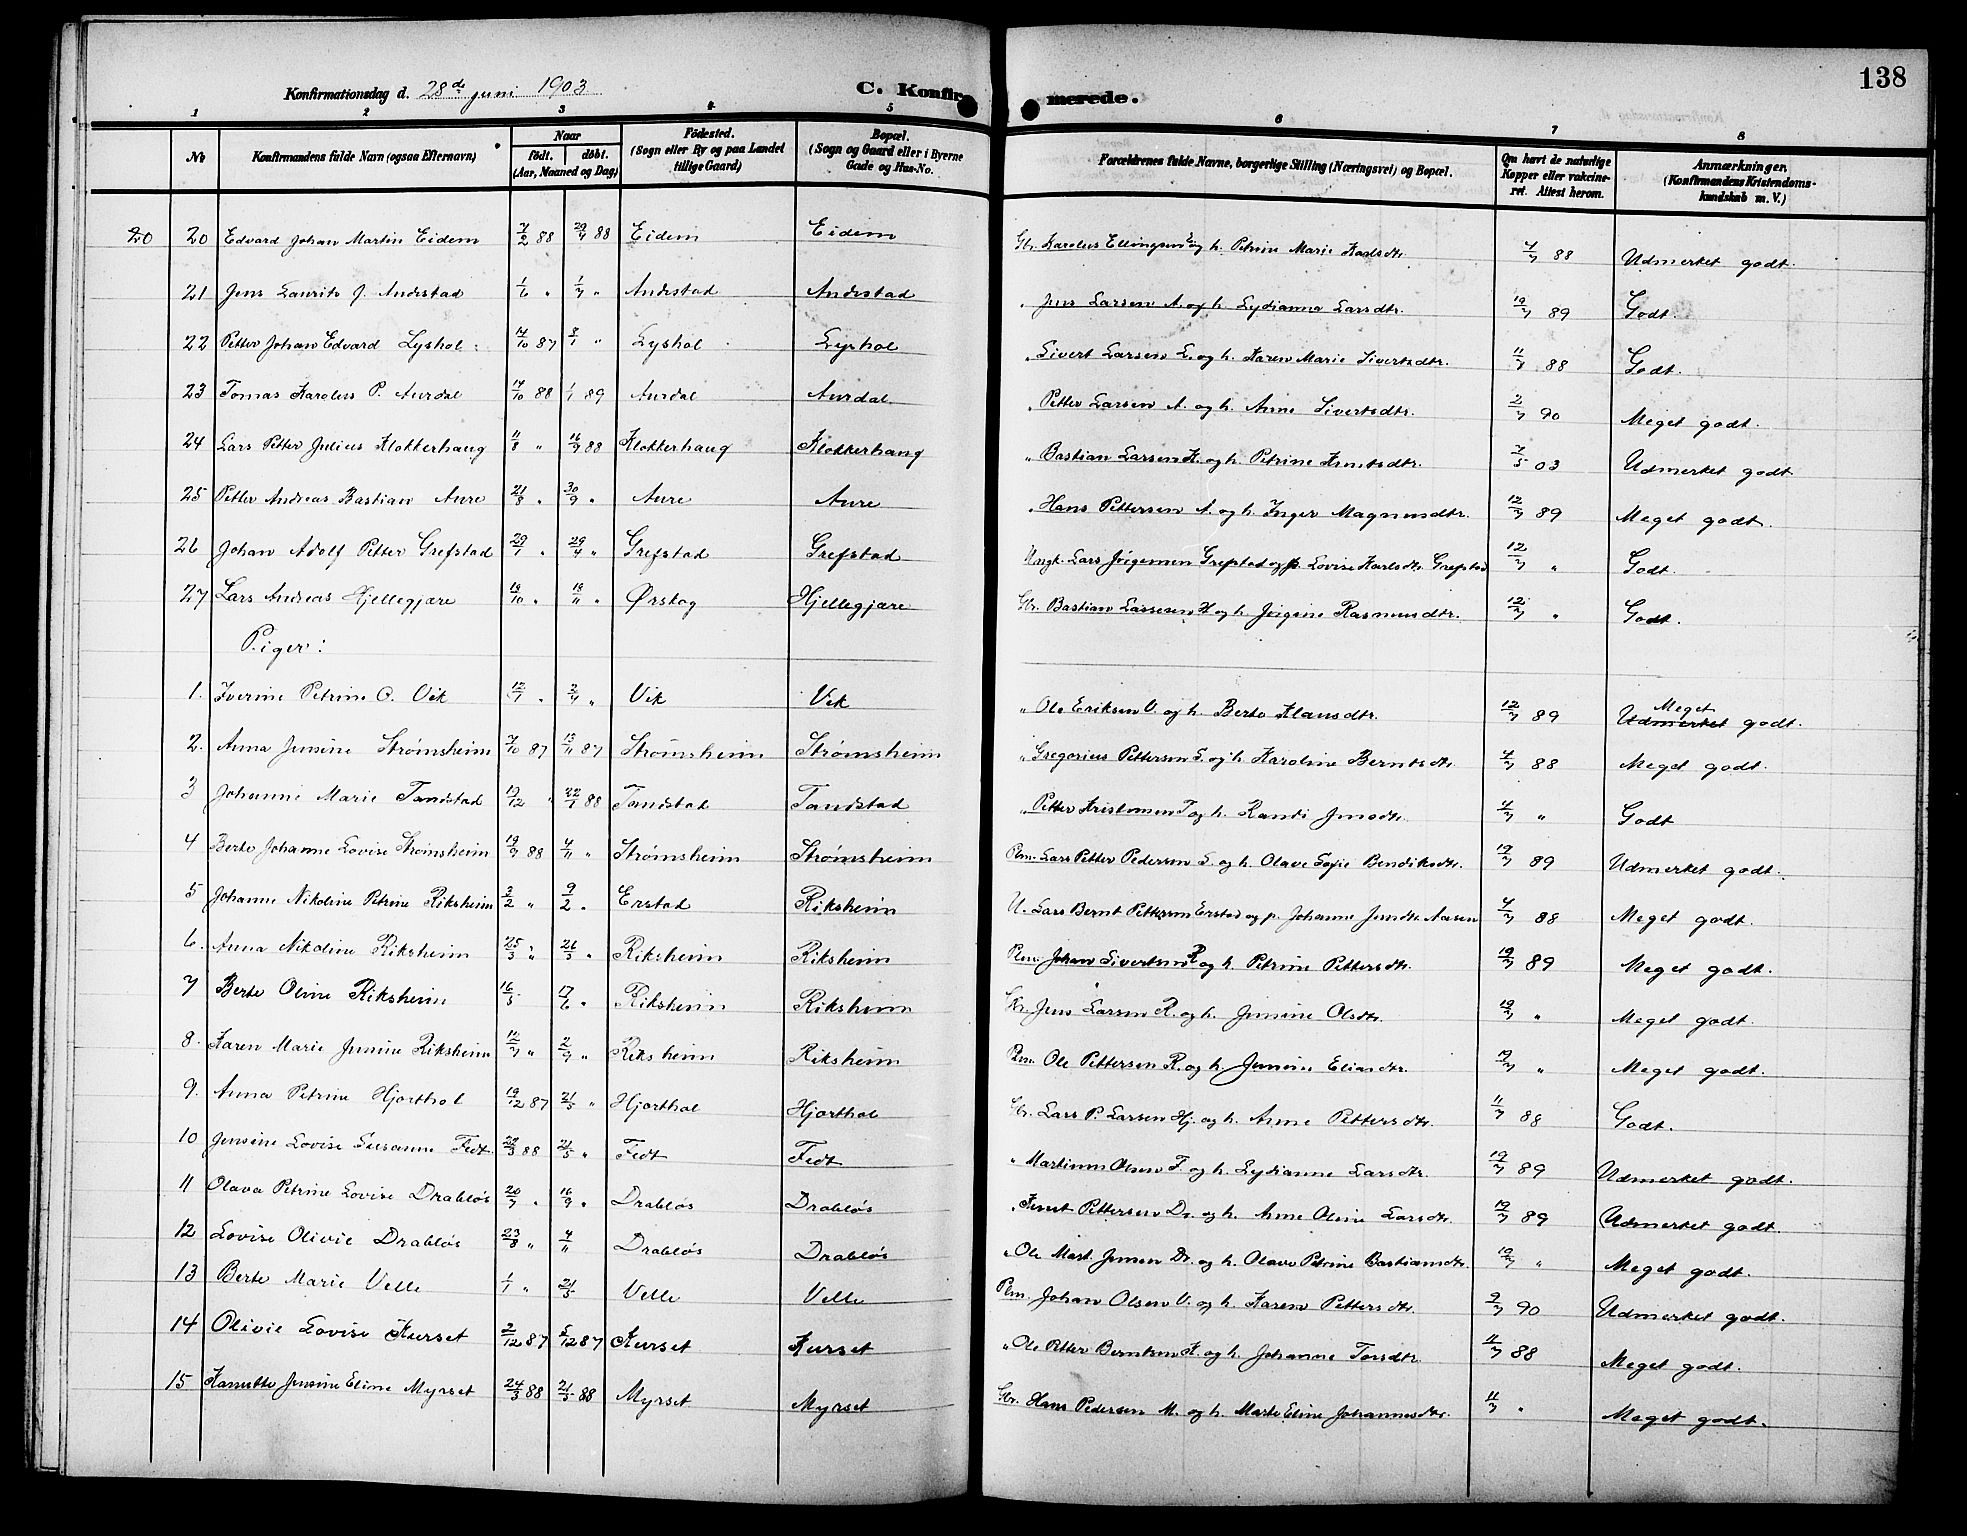 138
Konfirmationsdag d. 28de juni 1903 C. Konfirmerede.
1 2 3 4 5 6 7 8
No Konfirmandens fulde Navn (ogsaa Efternavn) Naar födt. döbt. (Aar, Maaned og Dag) Födested. (Sogn eller By og paa Landet tillige Gaard) Bopæl. (Sogn og Gaard eller i Byerne Gade og Hus-No. Forældrenes fulde Navne, borgerlige Stilling (Næringsvei) og Bopæl. Om havt de naturlige Kopper eller vakcineret. Attest herom. Anmærkninger. (Konfirmandens Kristendomskundskab m. V.)
20 20 Edvard Johan Martin Eidem 7/2 88 29/4 88 Eidem Eidem Gbr. Karolus Ellingsen E. og h. Petrine Marie Karlsdtr. 4/7 88 Udmerket godt.
21 Jens Laurits J. Andestad 1/6 " 1/7 " Andestad Andestad " Jens Larsen A. og h. Lydianna Larsdtr. 19/7 89 Godt.
22 Petter Johan Edvard Lyshol 14/10 87 8/1 " Lyshol Lyshol " Sivert Larsen L. og h. Karen Marie Sivertsdtr. 11/7 88 Godt.
23 Tomas Karolus P. Aurdal 14/10 88 1/1 89 Aurdal Aurdal " Petter Larsen A. og h. Anne Sivertsdtr. 2/7 90 Meget godt.
24 Lars Petter Julius Klokkerhaug 11/8 " 16/9 88 Klokkerhaug Klokkerhaug " Bastian Larsen K. og h. Petrine Knutsdtr. 7/5 03 Udmerket godt.
25 Petter Andreas Bastian Aure 21/8 " 30/9 " Aure Aure " Hans Pettersen A. og h. Inger Magnusdtr. 12/7 89 Meget godt.
26 Johan Adolf Petter Grefstad 29/1 " 29/4 " Grefstad Grefstad Ungk. Lars Jörgensen Grefstad og p. Lovise Karlsdtr. Grefstad 12/7 " Godt.
27 Lars Andreas Hjellegjære 19/10 " 18/11 " Ørskog Hjellegjære Gbr. Bastian Larsen H. og h. Jörgine Rasmusdtr. 12/7 " Godt.
Piger:
1. Iverine Petrine O. Vik 12/1 " 2/4 " Vik Vik " Ole Eriksen V. og h. Berte Klausdtr. 12/7 89 Meget Udmerket godt.
2. Anna Jensine Strømsheim 7/10 87 13/11 87 Strømsheim Strømsheim " Gregorius Pettersen S. og h. Karoline Berntsdtr. 4/7 88 Meget godt.
3 Johanne Marie Tandstad 19/12 " 22/1 88 Tandstad Tandstad " Petter Kristensen T. og h. Randi Jensdtr. 4/7 " Godt
4 Berte Johanne Lovise Strømsheim 19/9 88 4/11 " Strømsheim Strømsheim Plm. Lars Petter Pedersen S. og h. Olave Sofie Bendiksdtr. 19/7 89 Udmerket godt.
5 Johanne Nikoline Petrine Riksheim 3/2 " 9/2 " Erstad Riksheim U. Lars Bernt Pettersen Erstad og p. Johanne Jensdtr. Aasen 4/7 88 Meget godt.
6. Anna Nikoline Riksheim 25/3 " 21/5 " Riksheim Riksheim Plm. Johan Sivertsen R. og h. Petrine Pettersdtr. 19/7 89 Meget godt.
7 Berte Oline Riksheim 16/5 17/6 " Riksheim Riksheim Gbr. Jens Larsen R. og h. Jensine Olsdtr. 19/7 " Meget godt.
8. Karen Marie Jensine Riksheim 12/7 " 2/9 " Riksheim Riksheim Plm. Ole Pettersen R. og h. Jensine Eliasdtr. 19/7 " Meget godt.
9. Anna Petrine Hjorthol 19/12 87 21/5 " Hjorthol Hjorthol Gbr. Lars P. Larsen Hj. og h. Anne Pettersdtr. 11/7 88 Godt.
10 Jensine Lovise Susanne Fedt 29/3 88 21/5 " Fedt Fedt " Martinus Olsen F. og h. Lydianne Larsdtr. 19/7 89 Udmerket godt.
11 Olava Petrine Lovise Drabløs 20/7 " 16/9 " Drabløs Drabløs " Knut Pettersen Dr. og h. Anne Oline Larsdtr. 19/7 89 Udmerket godt.
12 Lovise Olivie Drabløs 23/8 " 4/11 Drabløs Drabløs " Ole Mart. Jensen Dr. og h. Olave Petrine Bastiansdtr. 19/7 " Meget godt.
13 Berte Marie Velle 1/1 " 21/5 Velle Velle Plm. Johan Olsen V. og h. Karen Pettersdtr. 2/7 90 Udmerket godt.
14 Olivie Lovise Kurset 2/12 87 5/12 87 Kurset Kurset " Ole Petter Berntsen K. og h. Johanne Torsdtr. 11/7 88 Meget godt.
15 Kanutte Jensine Eline Myrset 24/3 88 21/5 88 Myrset Myrset Gbr. Hans Pedersen M. og h. Marte Eline Johannesdtr. 11/7 " Meget godt.